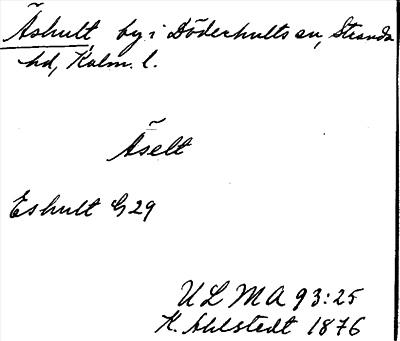 Åshult, by i Döderhults sn, Stranda
hd, Kalm. l.
Ãselt
Eshult G 29
ULMA 93:25
K. Ahlstedt 1876